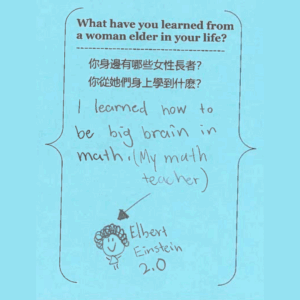 What have you learned from
a woman elder in your life?
你身邊有哪些女性長者?
你從她們身上學到什麽?
I learned how to
be big brain in
math. (My math
teacher)
Elbert
Einstein
2.0